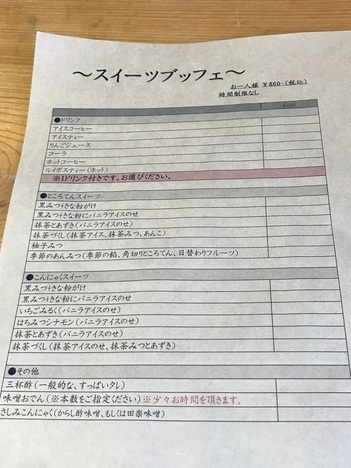 ～スイーツブッフェ～
お一人様 ￥860-(税込)
時間制限なし
●ドリンク
アイスコーヒー
アイスティー
りんごジュース
コーラ
ホットコーヒー
ルイボスティー(ホット)
※1ドリンク付きです。お選びください。
●ところてんスイーツ
黒みつきな粉がけ
黒みつきな粉にバニラアイスのせ
抹茶とあずき(バニラアイスのせ)
抹茶づくし(抹茶アイス、抹茶みつ、あんこ)
柚子みつ
季節のあんみつ(季節の餡、角切りところてん、日替わりフルーツ)
●こんにゃくスイーツ
黒みつきな粉がけ
黒みつきな粉にバニラアイスのせ
いちごみるく(バニラアイスのせ)
はちみつシナモン(バニラアイスのせ)
抹茶とあずき(バニラアイスのせ)
抹茶づくし(抹茶アイスのせ、抹茶みつとあずき)
●その他
三杯酢(一般的な、すっぱいタレ)
味噌おでん(※本数をご指定ください)※少々お時間を頂きます。
さしみこんにゃく(からし酢味噌、もしくは田楽味噌)